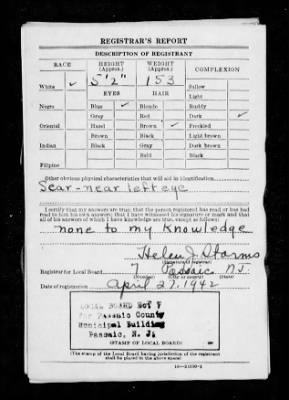 REGISTRAR'S REPORT
DESCRIPTION OF REGISTRANT
RACE HEIGHT (Approx.) WEIGHT (Approx.) COMPLEXION
White ✓ 5'2" 153 Sallow
EYES HAIR Light
Negro Blue ✓ Blonde Ruddy
Gray Red Dark ✓
Oriental Hazel Brown ✓ Freckled
Brown Black Light brown
Indian Black Gray Dark brown
Bald Black
Filipino
Other obvious physical characteristics that will aid in identification
Scar-near left eye
I certify that my answers are true; that the person registered has read or has had
read to him his own answers; that I have witnessed his signature or mark and that
all of his answers of which I have knowledge are true, except as follows:
none to my knowledge
Helen J. Storms
(Signature of registrar)
Registrar for Local Board 7 Passaic N.J.
(Number) (City or county) (State)
Date of registration April 27, 1942
LOCAL BOARD No. 7
for Passaic County
Municipal Building
Passaic, N. J.
(STAMP OF LOCAL BOARD)
(The stamp of the Local Board having jurisdiction of the registrant
shall be placed in the above space)